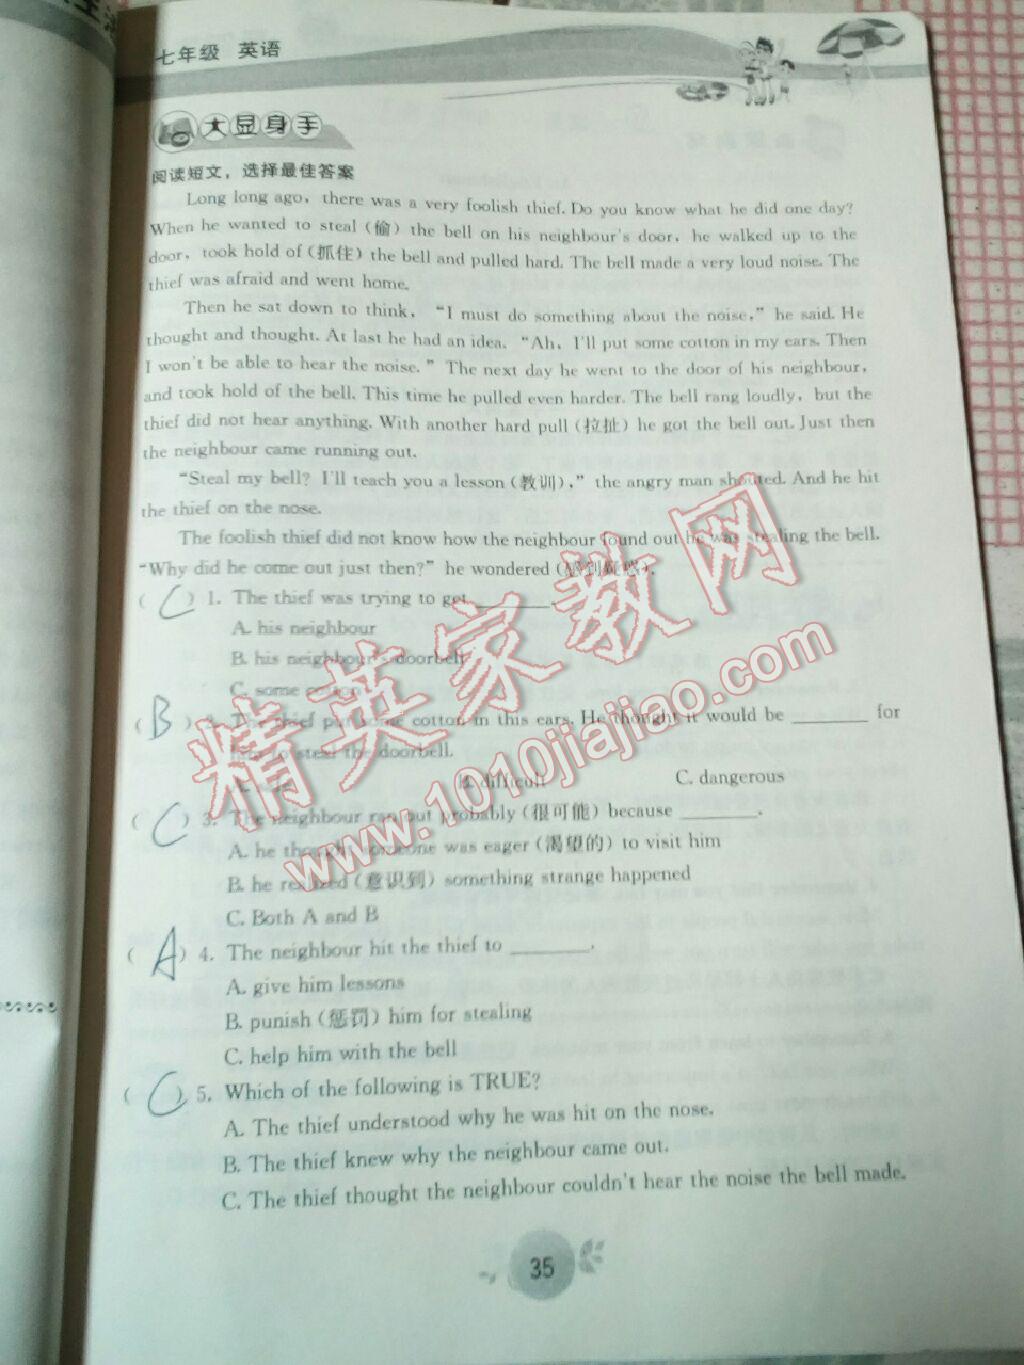 七年级 英语
大显身手
阅读短文，选择最佳答案
Long long ago, there was a very foolish thief. Do you know what he did one day?
When he wanted to steal (偷) the bell on his neighbour's door, he walked up to the
door, took hold of (抓住) the bell and pulled hard. The bell made a very loud noise. The
thief was afraid and went home.
Then he sat down to think, "I must do something about the noise," he said. He
thought and thought. At last he had an idea. "Ah, I'll put some cotton in my ears. Then
I won't be able to hear the noise." The next day he went to the door of his neighbour,
and took hold of the bell. This time he pulled even harder. The bell rang loudly, but the
thief did not hear anything. With another hard pull (拉扯) he got the bell out. Just then
the neighbour came running out.
"Steal my bell? I'll teach you a lesson (教训)," the angry man shouted. And he hit
the thief on the nose.
The foolish thief did not know how the neighbour found out he was stealing the bell.
"Why did he come out just then?" he wondered (感到疑惑).
( C ) 1. The thief was trying to get ________.
A. his neighbour
B. his neighbour's doorbell
C. some cotton
( B ) 2. The thief put some cotton in this ears. He thought it would be ________ for
him to steal the doorbell.
B. difficult C. dangerous
( C ) 3. The neighbour ran out probably (很可能) because ________.
A. he thought someone was eager (渴望的) to visit him
B. he realized (意识到) something strange happened
C. Both A and B
( A ) 4. The neighbour hit the thief to ________.
A. give him lessons
B. punish (惩罚) him for stealing
C. help him with the bell
( C ) 5. Which of the following is TRUE?
A. The thief understood why he was hit on the nose.
B. The thief knew why the neighbour came out.
C. The thief thought the neighbour couldn't hear the noise the bell made.
35
精英家教网
www.1010jiajiao.com